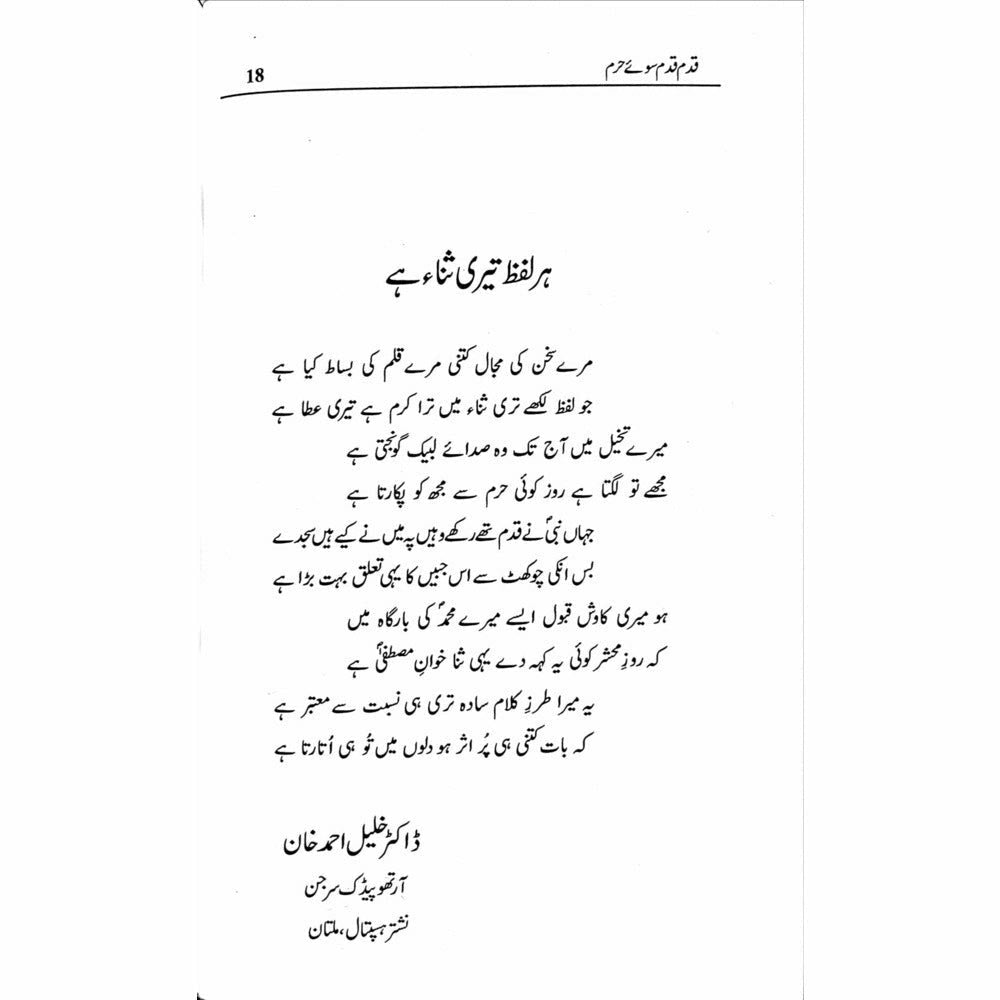 قدم قدم سوئے حرم
18
ہر لفظ تیری ثناء ہے
مرے سخن کی مجال کتنی مرے قلم کی بساط کیا ہے
جو لفظ لکھے تری ثناء میں ترا کرم ہے تیری عطا ہے
میرے تخیل میں آج تک وہ صدائے لبیک گونجتی ہے
مجھے تو لگتا ہے روز کوئی حرم سے مجھ کو پکارتا ہے
جہاں نبیؐ نے قدم تھے رکھے وہیں پہ میں نے کیے ہیں سجدے
بس انکی چوکھٹ سے اس جبیں کا یہی تعلق بہت بڑا ہے
ہو میری کاوش قبول ایسے میرے محمدؐ کی بارگاہ میں
کہ روزِ محشر کوئی یہ کہہ دے یہی ثنا خوانِ مصطفیٰؐ ہے
یہ میرا طرزِ کلام سادہ تری ہی نسبت سے معتبر ہے
کہ بات کتنی ہی پُر اثر ہو دلوں میں تُو ہی اُتارتا ہے
ڈاکٹر خلیل احمد خان
آرتھوپیڈک سرجن
نشتر ہسپتال، ملتان